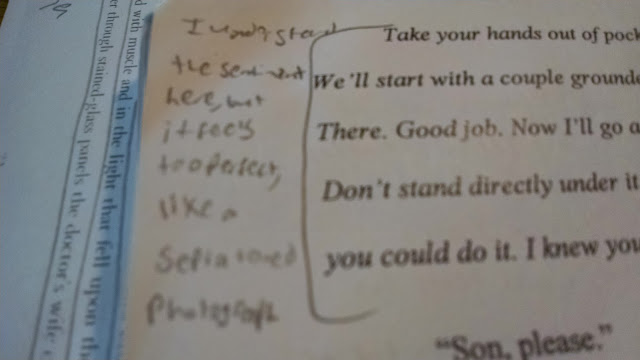 d with muscle and in the light that fell upon th
er through stained-glass panels the doctor's wife
I understand
the sentiment
here, but
it feels
too perfect,
like a
Sepia toned
photograph
Take your hands out of pock
We'll start with a couple grounde
There. Good job. Now I'll go a
Don't stand directly under it
you could do it. I knew you
"Son, please."